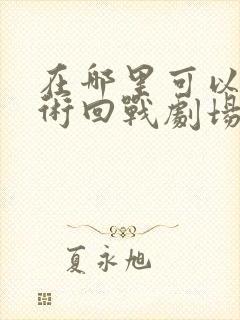 在哪里可以
術回戰劇場
夏永旭